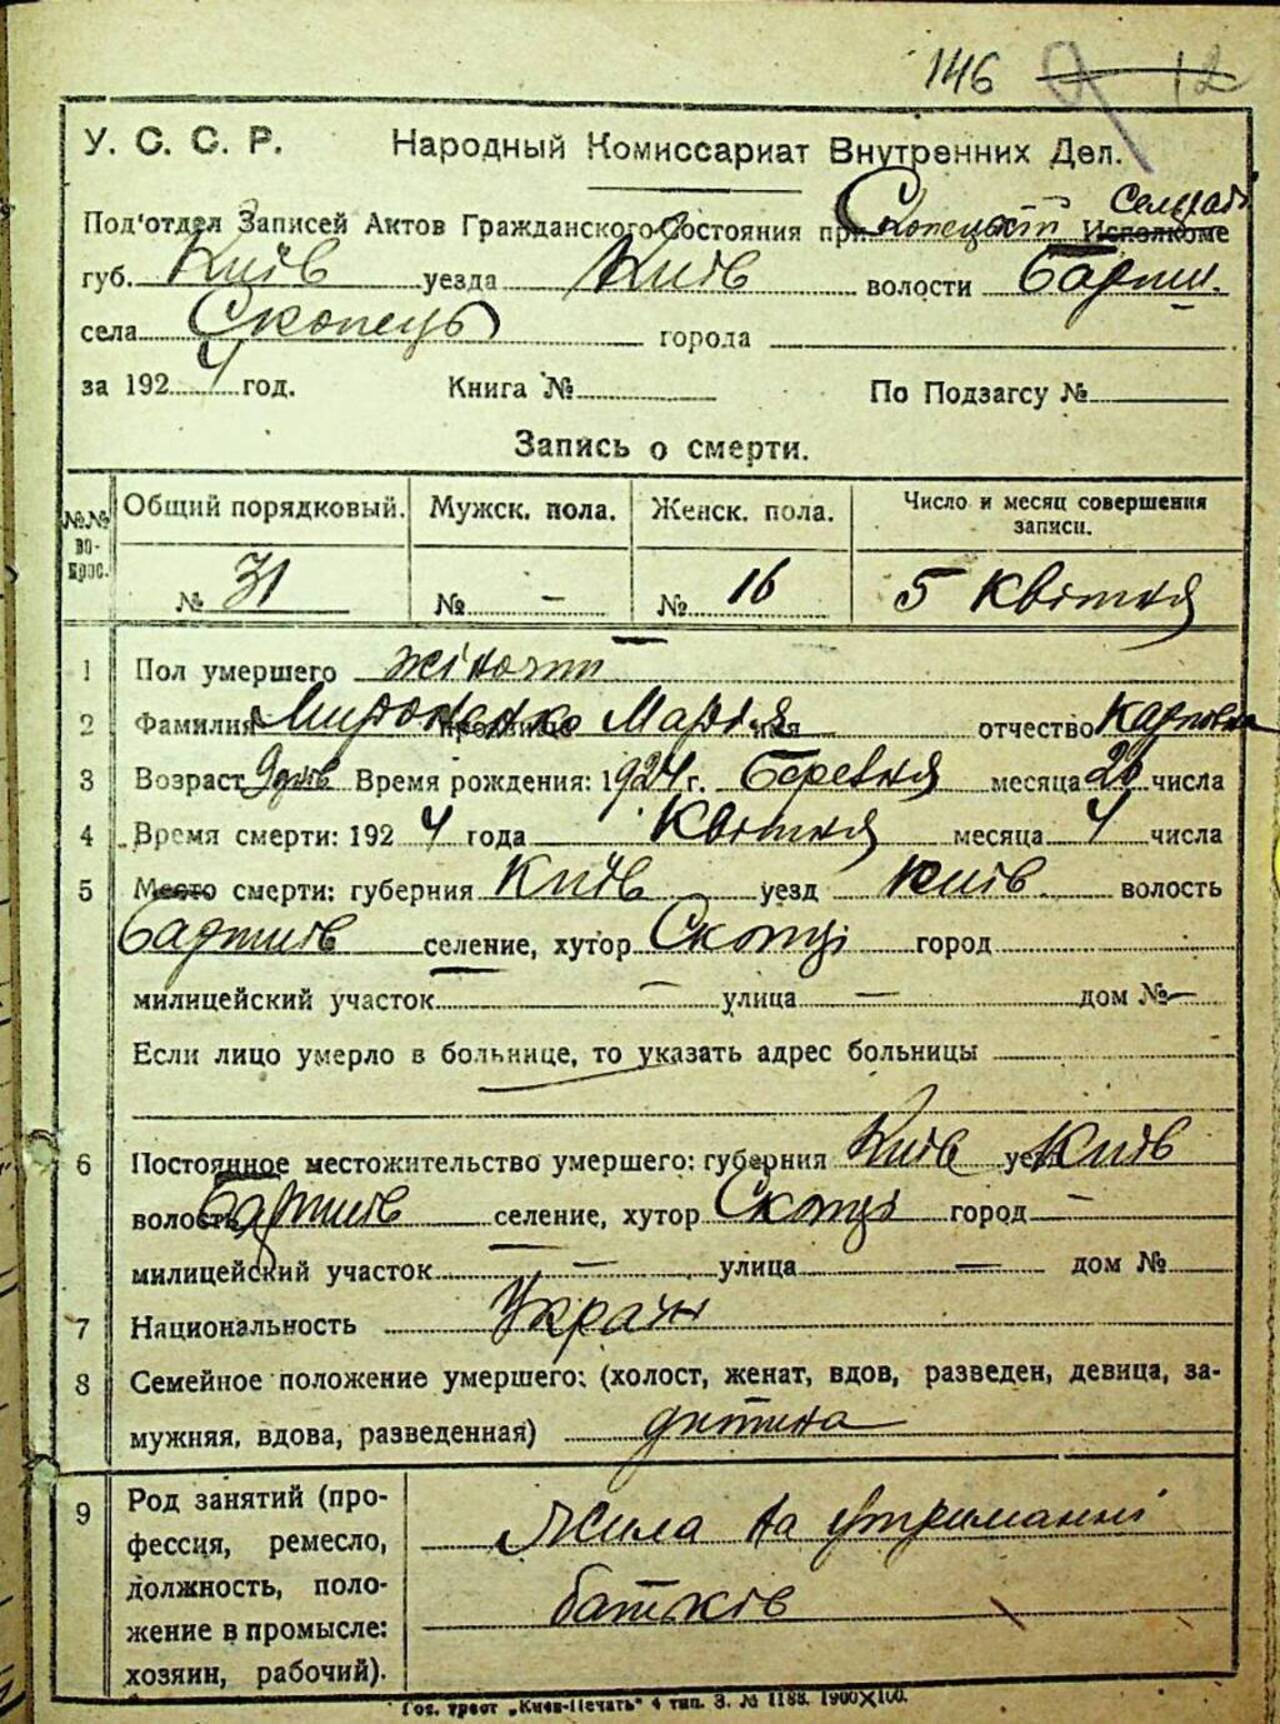 146 12
У. С. С. Р. Народный Комиссариат Внутренних Дел.
Под'отдел Записей Актов Гражданского Состояния при Скопецькій сельраді Исполкоме
губ. Київ уезда Київ волости Бариш.
села Скопець города
за 1924 год. Книга № По Подзагсу №
Запись о смерти.
№№ вопрос. Общий порядковый. Мужск. пола. Женск. пола. Число и месяц совершения записи.
№ 31 № — № 16 5 Квітня
1 Пол умершего жіночій
2 Фамилия Мироненко прозвище Марія имя отчество Карповна
3 Возраст 9 днів Время рождения: 1924 г. Березня месяца 26 числа
4 Время смерти: 1924 года Квітня месяца 4 числа
5 Место смерти: губерния Київ уезд Київ волость
Баришів селение, хутор Скопці город
милицейский участок — улица — дом № —
Если лицо умерло в больнице, то указать адрес больницы
6 Постоянное местожительство умершего: губерния Київ уезд Київ
волость Баришів селение, хутор Скопці город —
милицейский участок — улица — дом №
7 Национальность Украін
8 Семейное положение умершего: (холост, женат, вдов, разведен, девица, за-
мужняя, вдова, разведенная) дитина
9 Род занятий (про-
фессия, ремесло,
должность, поло-
жение в промысле:
хозяин, рабочий).
Жила на утриманні
батьків
Гос. трест „Киев-Печать" 4 тип. З. № 1188. 1900×100.